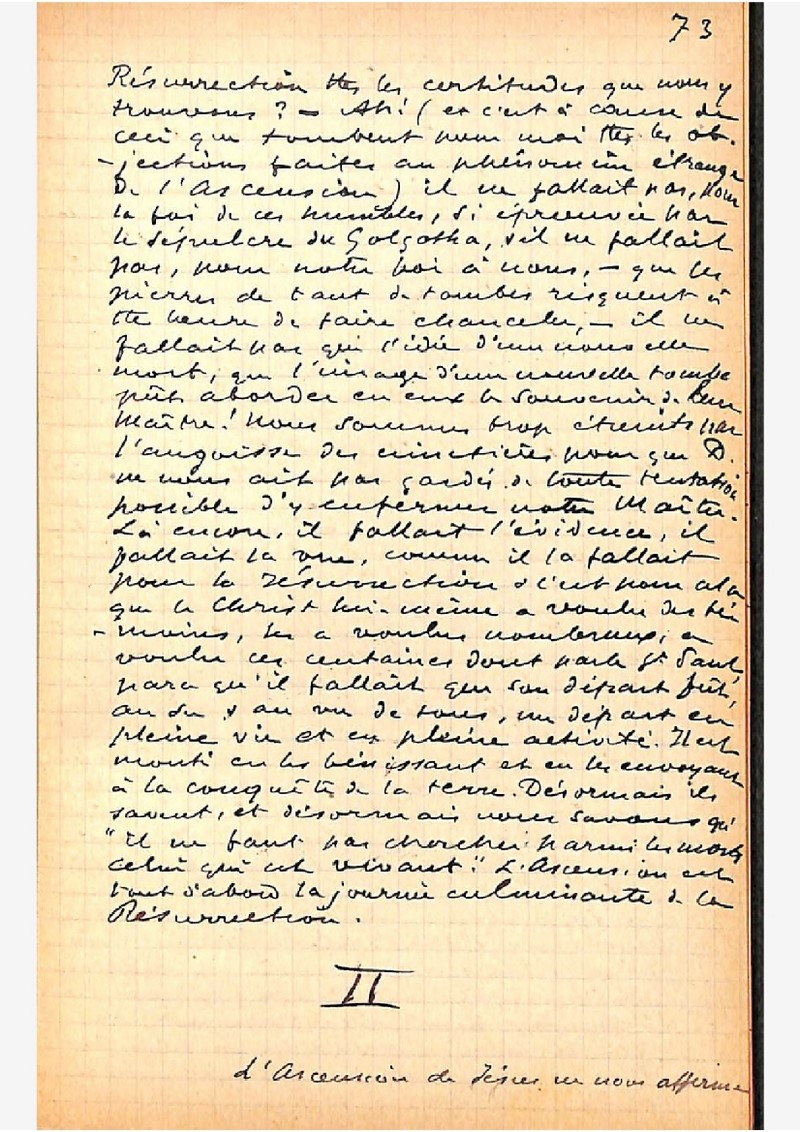 73
Résurrection ttes les certitudes que nous y
trouvons ? — Ah ! ( et c'est à cause de
ceci que tombent pour moi ttes les ob-
-jections faites au phénomène étrange
de l'Ascension ) il ne fallait pas, pour
la foi de ces humbles, si éprouvée par
le sépulcre du Golgotha, il ne fallait
pas, pour notre foi à nous, — que les
pierres de tant de tombes risquent à
tte heure de faire chanceler, — il ne
fallait pas que l'idée d'une nouvelle
mort, que l'image d'une nouvelle tombe
pût aborder en eux le souvenir de leur
Maître ! Nous sommes trop étreints par
l'angoisse des cimetières pour que D.
ne nous ait pas gardés de toute tentation
possible d'y enfermer notre Maître.
Là encore, il fallait l'évidence, il
fallait la vue, comme il la fallait
pour la résurrection & c'est pour cela
que le Christ lui-même a voulu des té-
-moins, les a voulus nombreux, a
voulu ces centaines dont parle St Paul,
parce qu'il fallait que son départ fût,
au su & au vu de tous, un départ en
pleine vie et en pleine activité. Il est
monté en les bénissant et en les envoyant
à la conquête de la terre. Désormais ils
savent, et désormais nous savons qu'
"il ne faut pas chercher parmi les morts
celui qui est vivant". L'Ascension est
tout d'abord la journée culminante de la
Résurrection.
II
L'Ascension de Jésus ne nous affirme